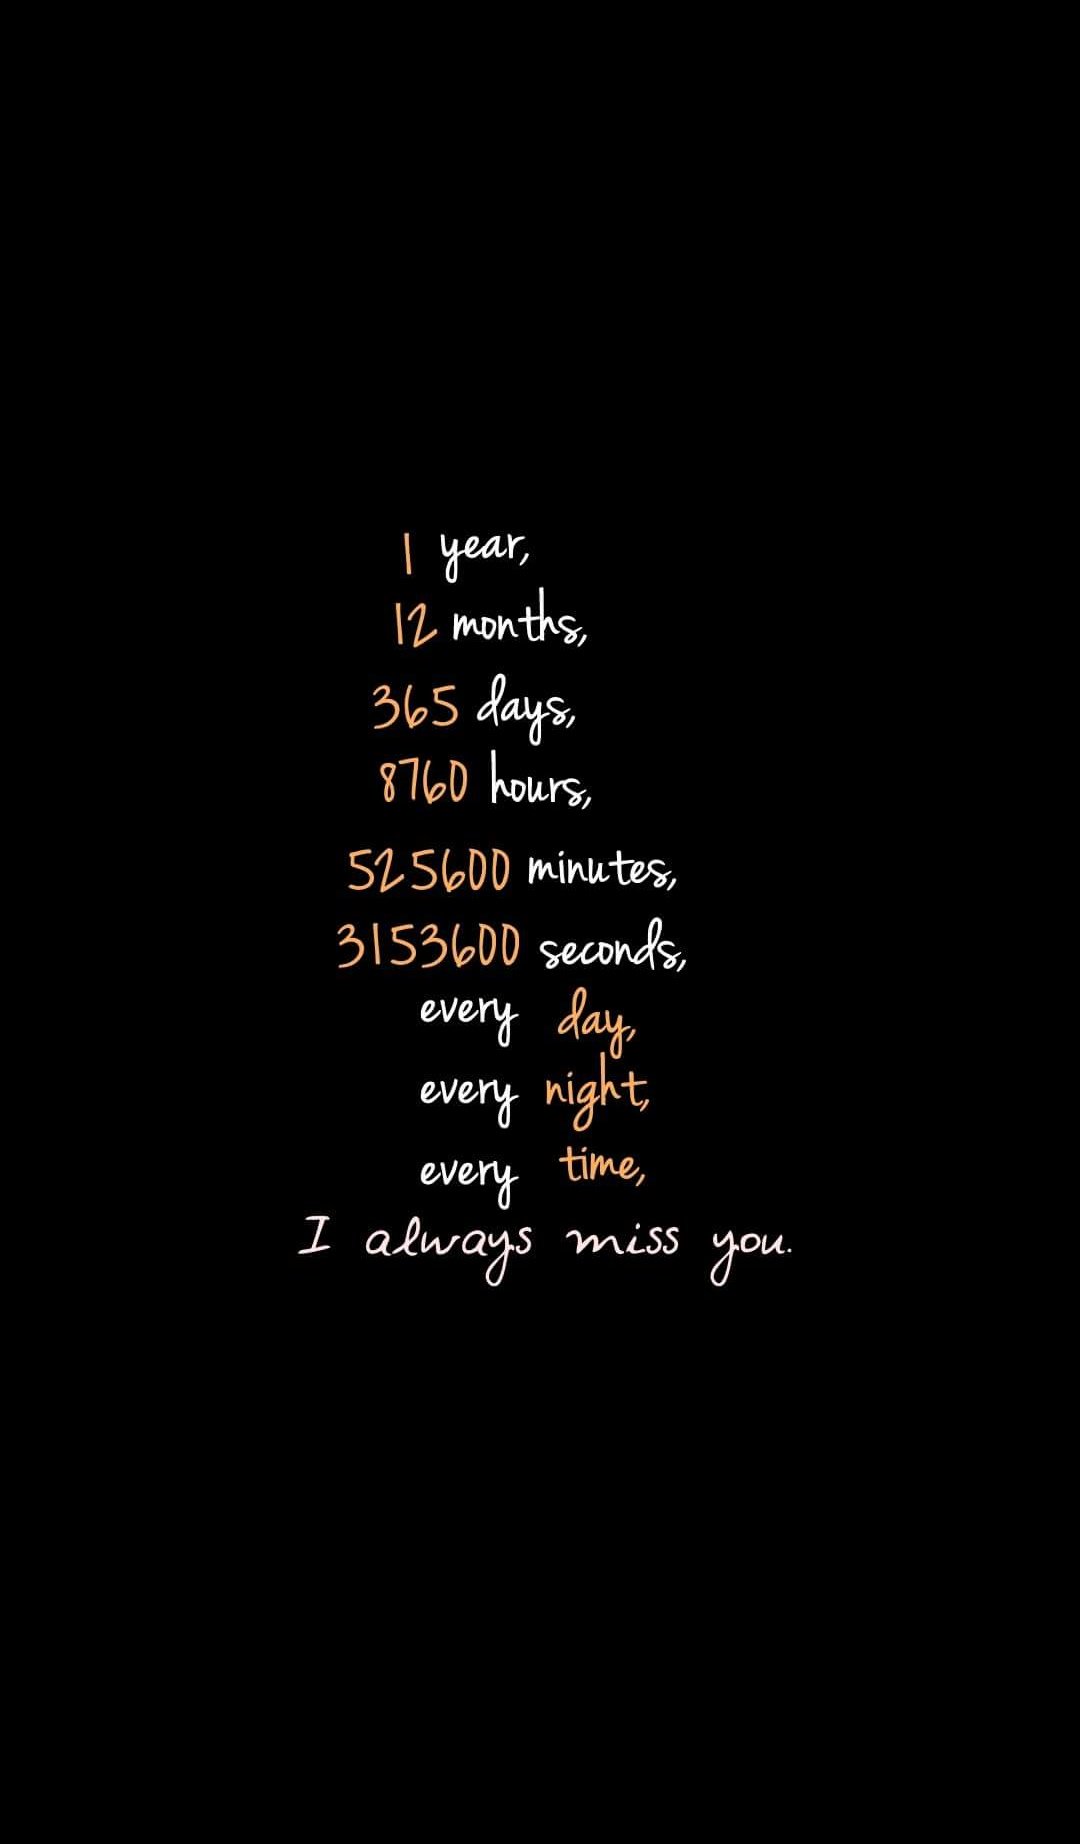 1 year,
12 months,
365 days,
8760 hours,
525600 minutes,
3153600 seconds,
every day,
every night,
every time,
I always miss you.